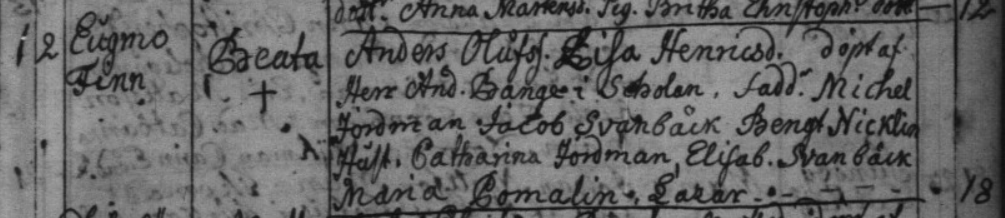 dott. Anna Martensd. Pig. Britha Christophs dott — 12
12 Eügmo Beata Anders Olüfss. Lisa Henricsd. döpt af
Finn † Herr And. Bånge i Scholan. fadd. Michel
Jordman Jacob Svanbäck Bengt Nicklin
Hüst. Catharina Jordman, Elisab. Svanbäck
Maria Pomalin. Lazar. 18